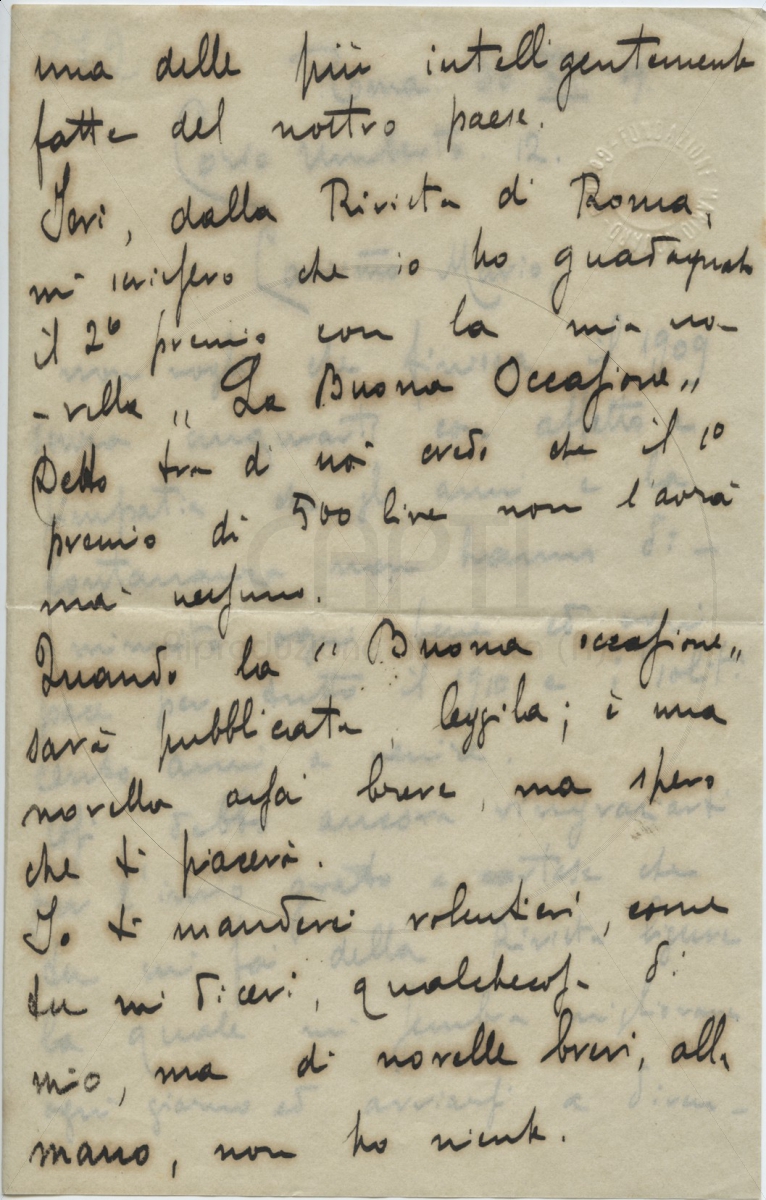 una delle più intelligentemente
fatte del nostro paese.
Ieri, dalla Rivista di Roma,
mi scrissero che io ho guadagnato
il 2º premio con la mia no-
-vella „ La Buona Occasione „
Detto tra di noi credo che il 1º
premio di 500 lire non l'avrà
mai nessuno.
Quando la " Buona occasione „
sarà pubblicata, leggila; è una
novella assai breve, ma spero
che ti piacerà.
Io ti manderei volentieri, come
tu mi dicevi, qualchecosa di
mio, ma di novelle brevi, alla
mano, non ho niente.
CAPTI